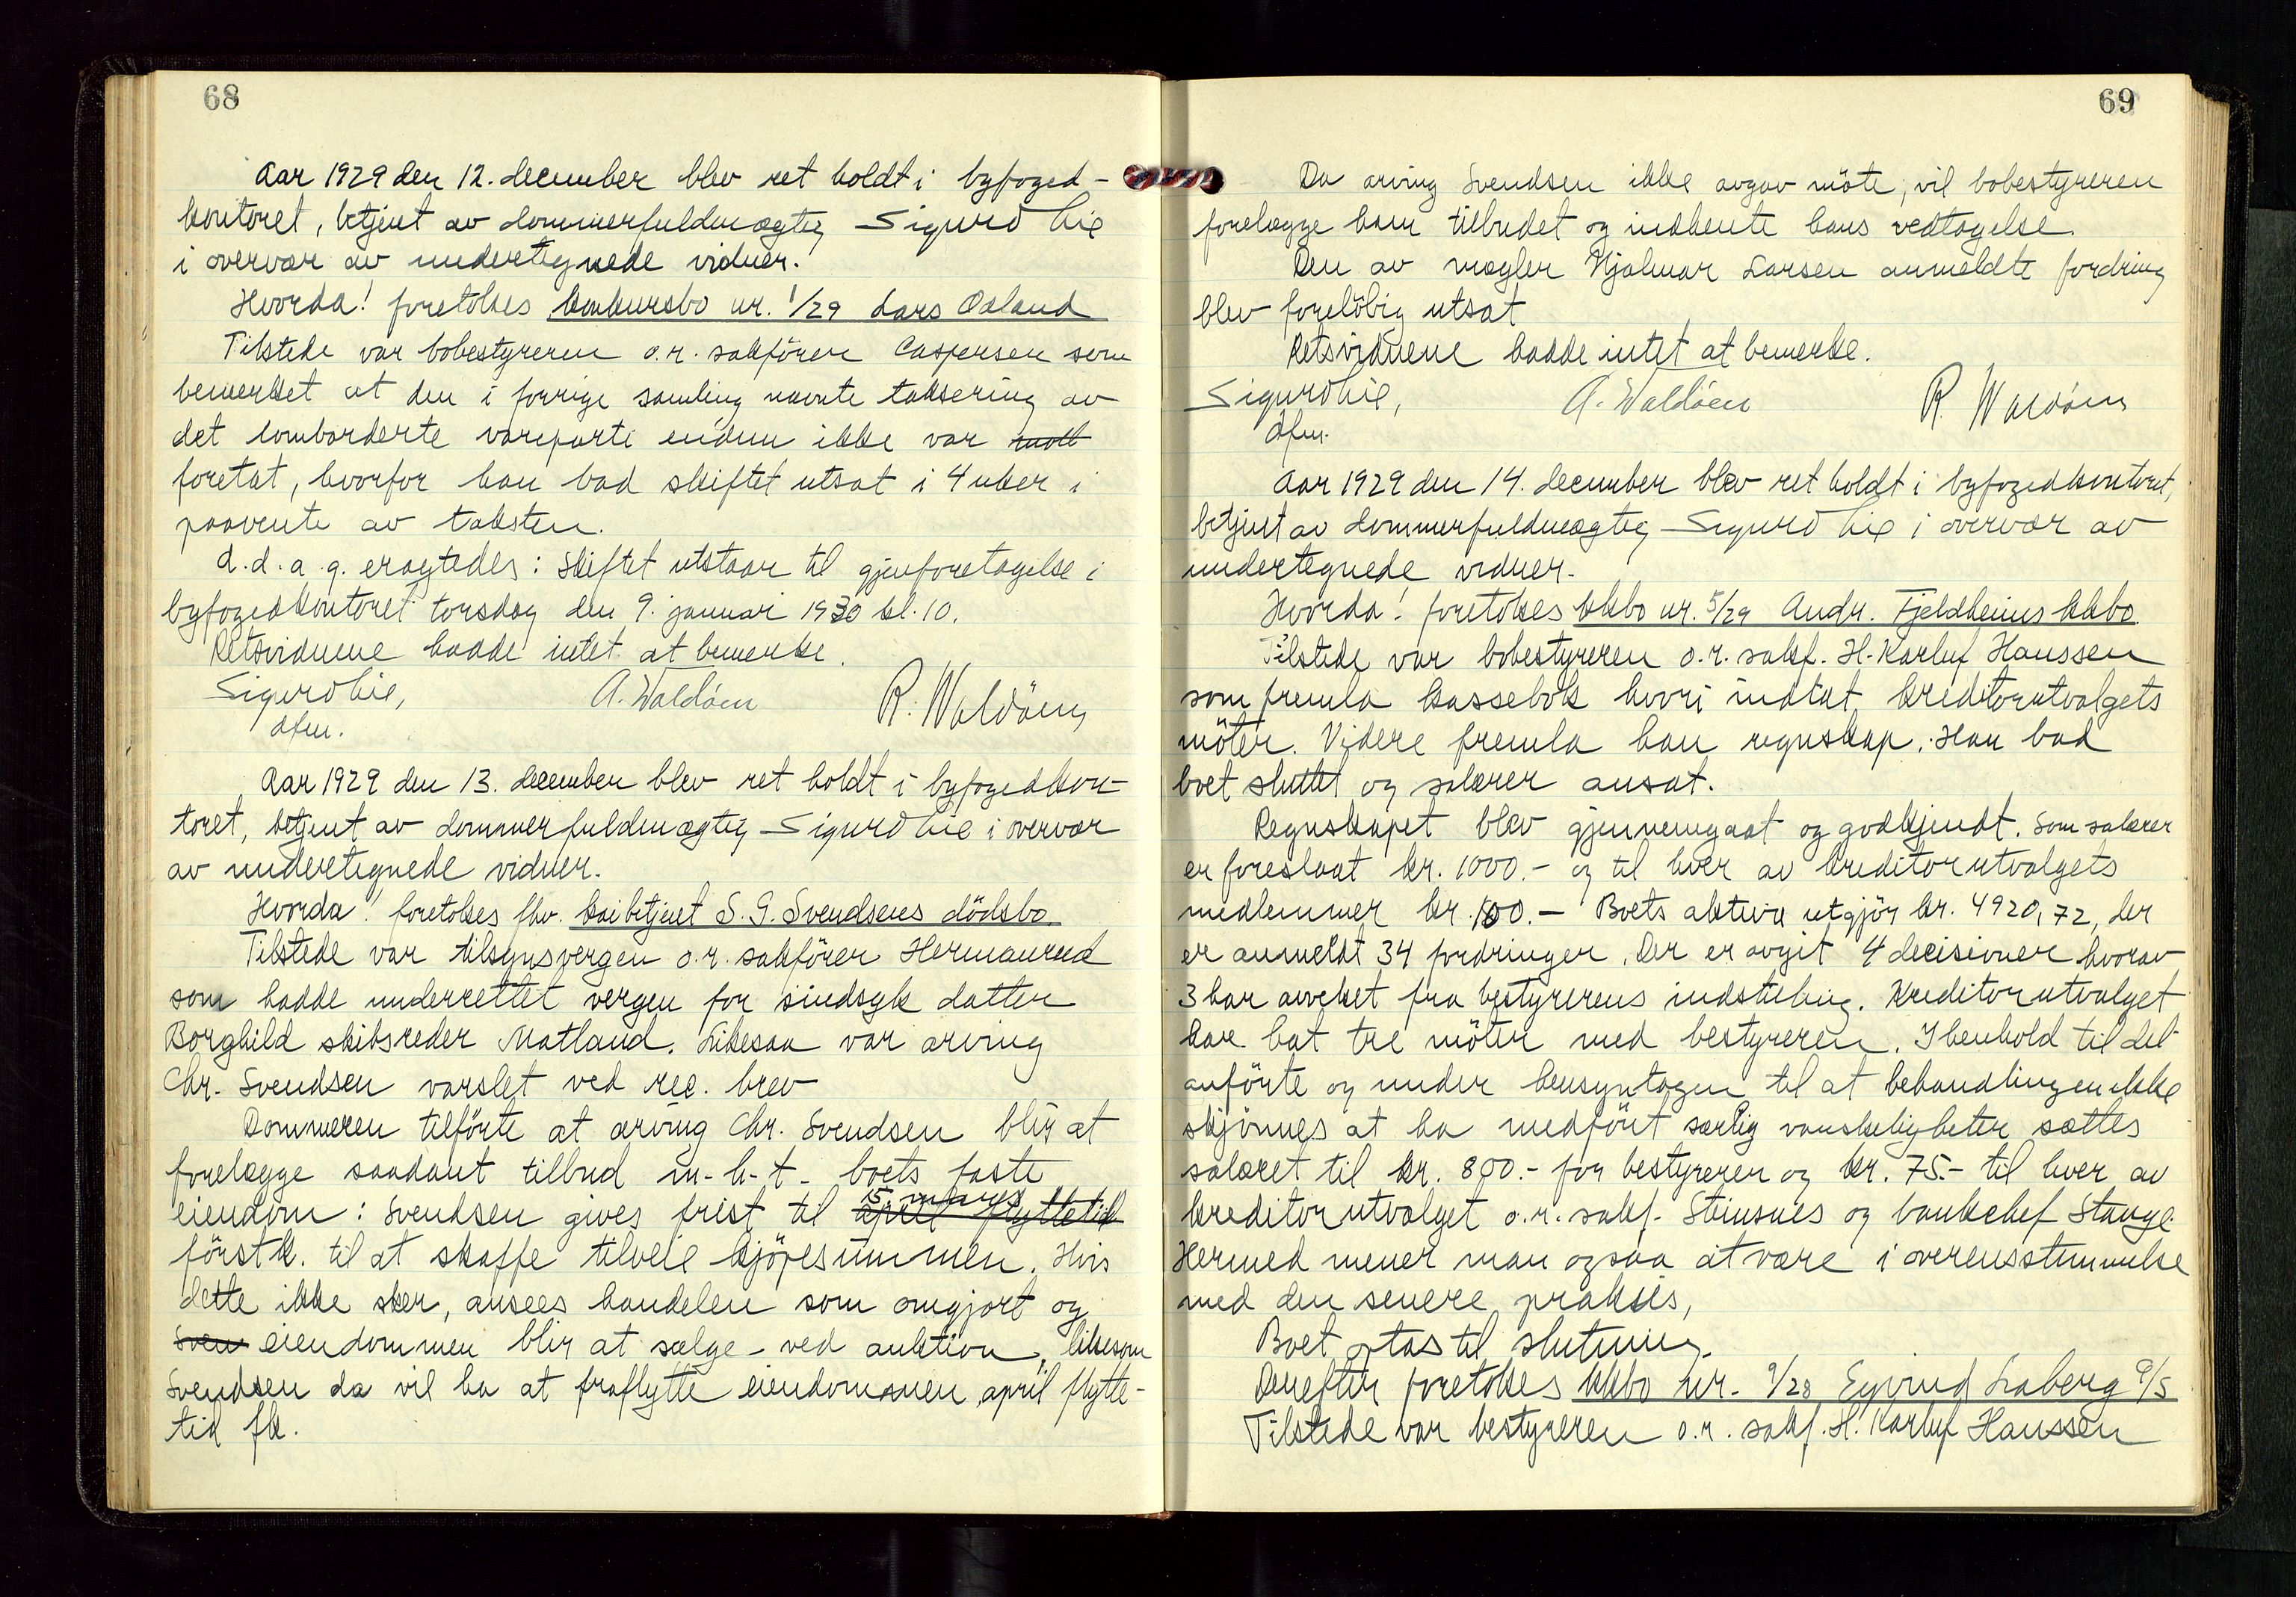 68
Aar 1929 den 12. december blev ret holdt i byfoged-
kontoret, betjent av dommerfuldmægtig Sigurd Lie
i overvær av undertegnede vidner.
Hvorda! foretokes konkursbo nr. 1/29 Lars Oaland
Tilstede var bobestyreren o.r. sakförer Caspersen som
bemerket at den i forrige samling nævnte taksering av
det lombarderte vareparti endnu ikke var mott
foretat, hvorfor han bad skiftet utsat i 4 uker i
paavente av taksten.
d.d.a.g. eragtedes: Skiftet utstaar til gjenforetagelse i
byfogedkontoret torsdag den 9. januar 1930 kl. 10.
Retsvidnene hadde intet at bemerke.
Sigurd Lie, A. Waldöen R. Waldöen
dfm.
Aar 1929 den 13. december blev ret holdt i byfogedkon-
toret, betjent av dommerfuldmægtig Sigurd Lie i overvær
av undertegnede vidner.
Hvorda! foretokes fhv. kaibetjent S. G. Svendsens dödsbo
Tilstede var tilsynsvergen o.r. sakförer Hermanrud
som hadde underrettet vergen for sindsyk datter
Borghild skibsreder Matland. Likesaa var arving
Chr. Svendsen varslet ved rec. brev
Dommeren tilförte at arving Chr. Svendsen blir at
forelægge saadant tilbud m-h-t- boets faste
eiendom: Svendsen gives frist til april flyttetid 15 mars
förstk. til at skaffe tilveie kjöpesummen. Hvis
dette ikke sker, ansees handelen som omgjort og
Sven eiendommen blir at sælge ved auktion, likesom
Svendsen da vil ha at fraflytte eiendommen april flytte-
tid fk.
69
Da arving Svendsen ikke avgav möte, vil bobestyreren
forelægge ham tilbudet og indhente hans vedtagelse.
Den av mægler Hjalmar Larsen anmeldte fordring
blev forelöbig utsat
Retsvidnene hadde intet at bemerke.
Sigurd Lie, A. Waldöen R. Waldöen
dfm.
Aar 1929 den 14. december blev ret holdt i byfogedkontoret,
betjent av dommerfuldmægtig Sigurd Lie i overvær av
undertegnede vidner.
Hvorda! foretokes kkbo nr. 5/29 Andr. Fjeldheims kkbo
Tilstede var bobestyreren o.r. sakf. H. Karluf Hanssen
som fremla kassebok hvori indtat kreditorutvalgets
möter. Videre fremla han regnskap. Han bad
boet sluttet og salærer ansat.
Regnskapet blev gjennemgaat og godkjendt. Som salærer
er foreslaat kr. 1000.- og til hver av kreditorutvalgets
medlemmer kr. 100.- Boets aktiva utgjör kr. 4920,72, der
er anmeldt 34 fordringer. Der er avgit 4 decisioner hvorav
3 har avveket fra bestyrerens indstilling. Kreditorutvalget
har hat tre möter med bestyreren. I henhold til det
anförte og under hensyntagen til at behandlingen ikke
skjönnes at ha medfört særlig vanskeligheter sættes
salæret til kr. 800.- for bestyreren og kr. 75.- til hver av
kreditorutvalget o.r. sakf. Steinsnes og bankchef Stange.
Hermed mener man ogsaa at være i overensstemmelse
med den senere praksis,
Boet optas til slutning.
Derefter foretokes kkbo nr. 9/28 Eyvind Laberg A/S
Tilstede var bestyreren o.r. sakf. H. Karluf Hanssen